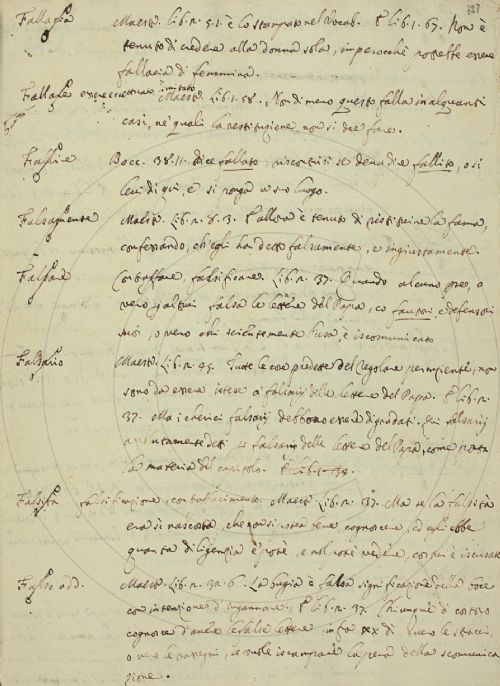 227
Fallacia Maestr. lib. 2. 51. è lo stampato nel Vocab. E lib. 1. 67. Non è
tenuto di credere alla donna sola, imperocchè potrebbe essere
fallacia di femmina.
Fallare Maestr. lib. 1. 58. Non di meno questo falla in alquanti
casi, ne' quali la restituzione non si dee fare.
Bocc. 38. 11. dice fallato, riscontrisi se deva dire fallito, o si
levi di qui, e si ponga a suo luogo.
Falsamente Maestr. lib. 2. 8. 3. E allora è tenuto di ristituire la fama,
confessando, ch'egli ha detto falsamente, e ingiustamente.
Falsare Contraffare, falsificare. lib. 2. 37. Quando alcuno per se, o
vero altrui falsa le lettere del Papa, co fautori, e difensori
suoi, o vero chi scientemente l'usa, è iscomunicato
Falsario Maestr. lib. 2. 45. Tutte le cose predette del
sono da essere intese a' falsarij delle lettere del Papa. E lib. 2.
37. Ma i cherici falsarij debbono essere digradati. Qui falsarij
falsarij delle lettere del Papa, come porta
la materia del capitolo.
Falsità falsificazione, contraffacimento. Maestr. lib. 2. 37. Ma se la falsità
era sì nascosta, che non si potea bene cognoscere ed egli ebbe
quanta diligenzia e' potè, e nol potè vedere, costui è iscusato
Falso add. Maestr. lib. 2. 30. 6. La bugia è falsa significazione della boce
con intenzione d'ingannare. E lib. 2. 37. Chiunque di costoro
cognosce d'avere le false lettere, infra xx dì
o vero le rassegni, se vuole iscampare la pena della scomunica
zione.